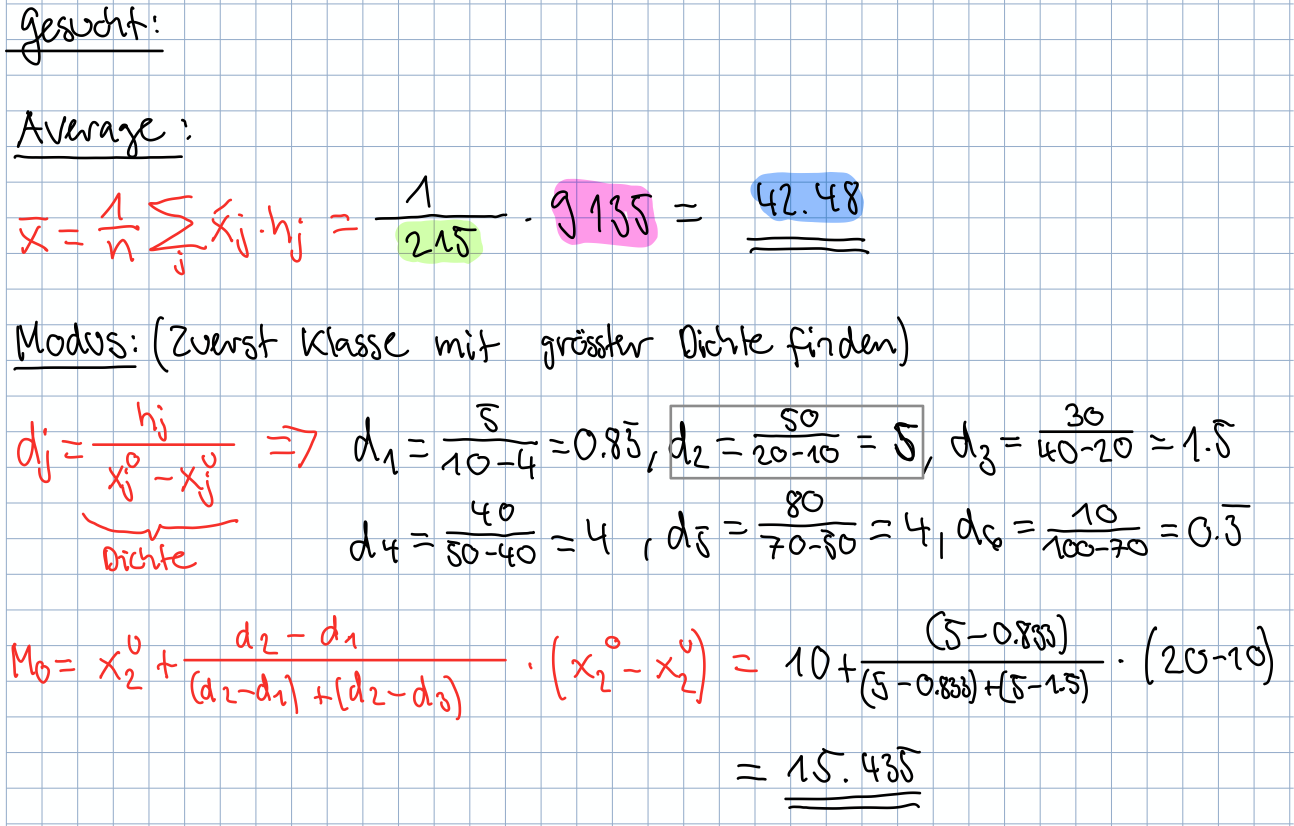 gesucht:
Average:
x̄ = 1/n ∑_j x̃_j · h_j = 1/215 · 9135 = 42.48
Modus: (Zuerst Klasse mit grösster Dichte finden)
d_j = h_j/(x_j^o − x_j^u) => d_1 = 5/(10−4) = 0.83, d_2 = 50/(20−10) = 5, d_3 = 30/(40−20) = 1.5
Dichte
d_4 = 40/(50−40) = 4, d_5 = 80/(70−50) = 4, d_6 = 10/(100−70) = 0.3̄
M_o = x_2^u + (d_2 − d_1)/((d_2−d_1) + (d_2−d_3)) · (x_2^o − x_2^u) = 10 + (5−0.833)/((5−0.833)+(5−1.5)) · (20−10)
= 15.435